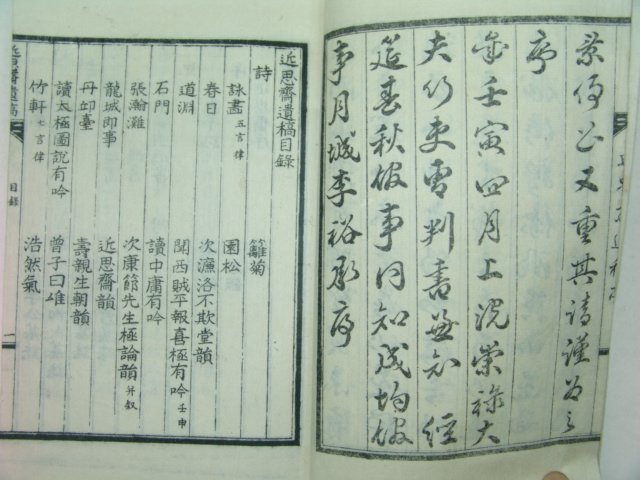 景仰又重其請謹爲之
序
歲壬寅四月上浣榮祿大
夫行吏曹判書兼知經
筵春秋館事同知成均館
事月城李裕承序
近思齋遺稿目錄
詩　籬菊
詠畵五言律　園松
春日　次濂洛不欺堂韻
道淵　聞西賊平報喜極有吟壬申
石門　讀中庸有吟
張瀚灘　次康節先生極論韻并叙
龍城卽事　近思齋韻
丹邱臺　壽親生朝韻
讀太極圖說有吟　曾子曰唯
竹軒七言律　浩然氣
近思齋遺稿　目錄　一